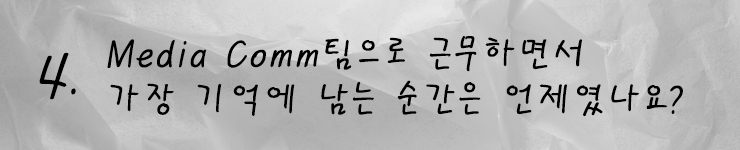 4. Media Comm팀으로 근무하면서
가장 기억에 남는 순간은 언제였나요?